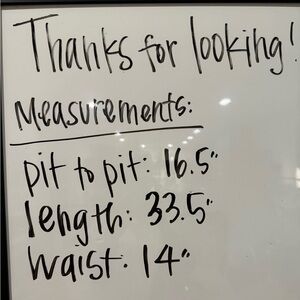 Thanks for looking!
Measurements:
pit to pit: 16.5"
length: 33.5"
waist: 14"